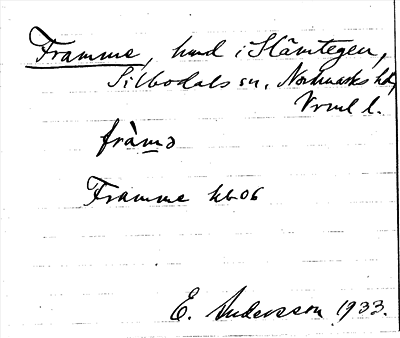 Framme, hmd i Slämtegen,
Silbodals sn, Nordmarks hd,
Vrml l.
fràmə
Framme hb 06
E. Andersson 1933.